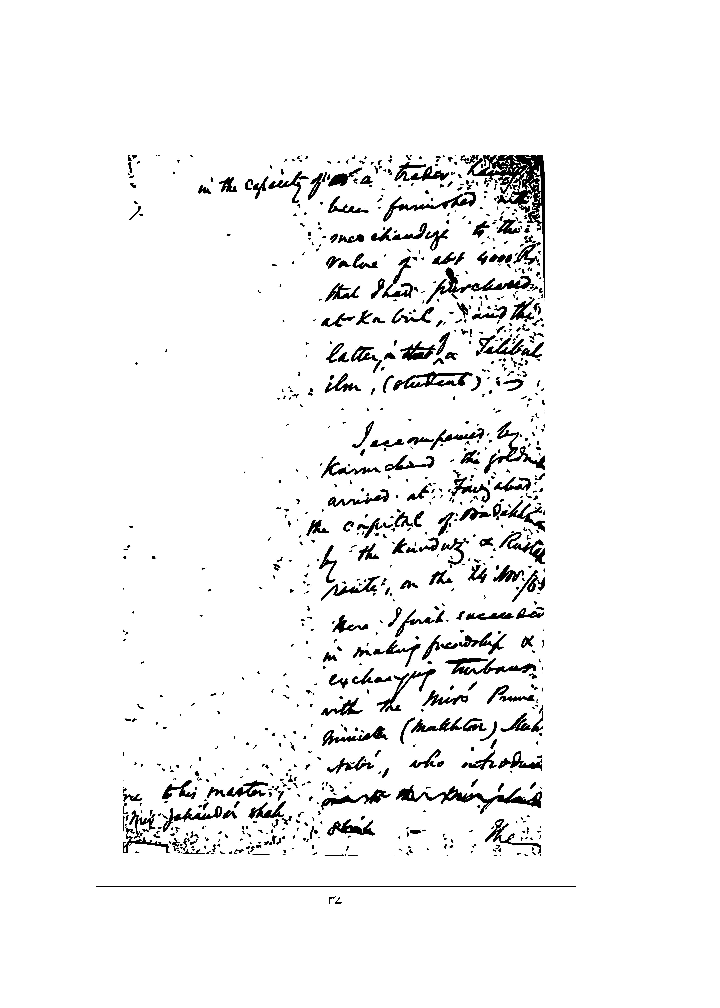 in the capacity of a trader having
been furnished with
merchandize to the
value of abt 4000 Rs.
that I had purchased
at Kabul, and the
latter, in that of a Talibul
ilm, (student)
I accompanied by
Karmchand the goldsm
arrived at Faizabad
the capital of Badakhshan
by the Kunduz & Rustak
route, on the 24 Nov./
Here I first succeeded
in making friendship &
exchanging turbans
with the Mir's Prime
Minister (Mukhtar)
Nabi, who introduced
me to his master,
Mir Jahandar Shah
me to the Mir Jahandar
Shah
The